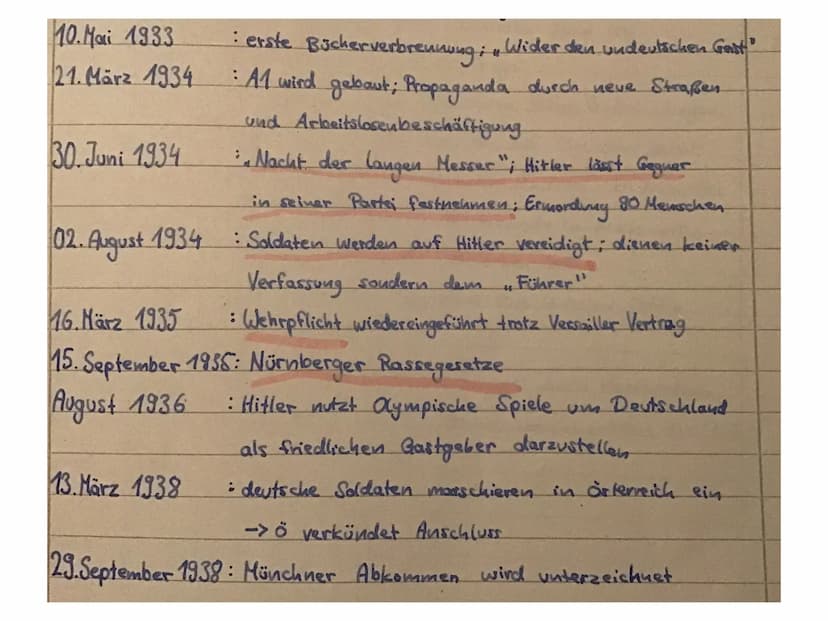 10. Mai 1933 : erste Bücherverbrennung; „Wider den undeutschen Geist"
21. März 1934 : A1 wird gebaut; Propaganda durch neue Straßen
und Arbeitslosenbeschäftigung
30. Juni 1934 : „Nacht der langen Messer"; Hitler lässt Gegner
in seiner Partei festnehmen; Ermordung 90 Menschen
02. August 1934 : Soldaten werden auf Hitler vereidigt; dienen keiner
Verfassung sondern dem „Führer"
16. März 1935 : Wehrpflicht wiedereingeführt trotz Versailler Vertrag
15. September 1935: Nürnberger Rassegesetze
August 1936 : Hitler nutzt Olympische Spiele um Deutschland
als friedlichen Gastgeber darzustellen
13. März 1938 : deutsche Soldaten marschieren in Österreich ein
-> Ö verkündet Anschluss
29. September 1938 : Münchner Abkommen wird unterzeichnet